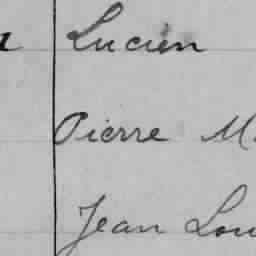 Lucien
Pierre M.
Jean Lou